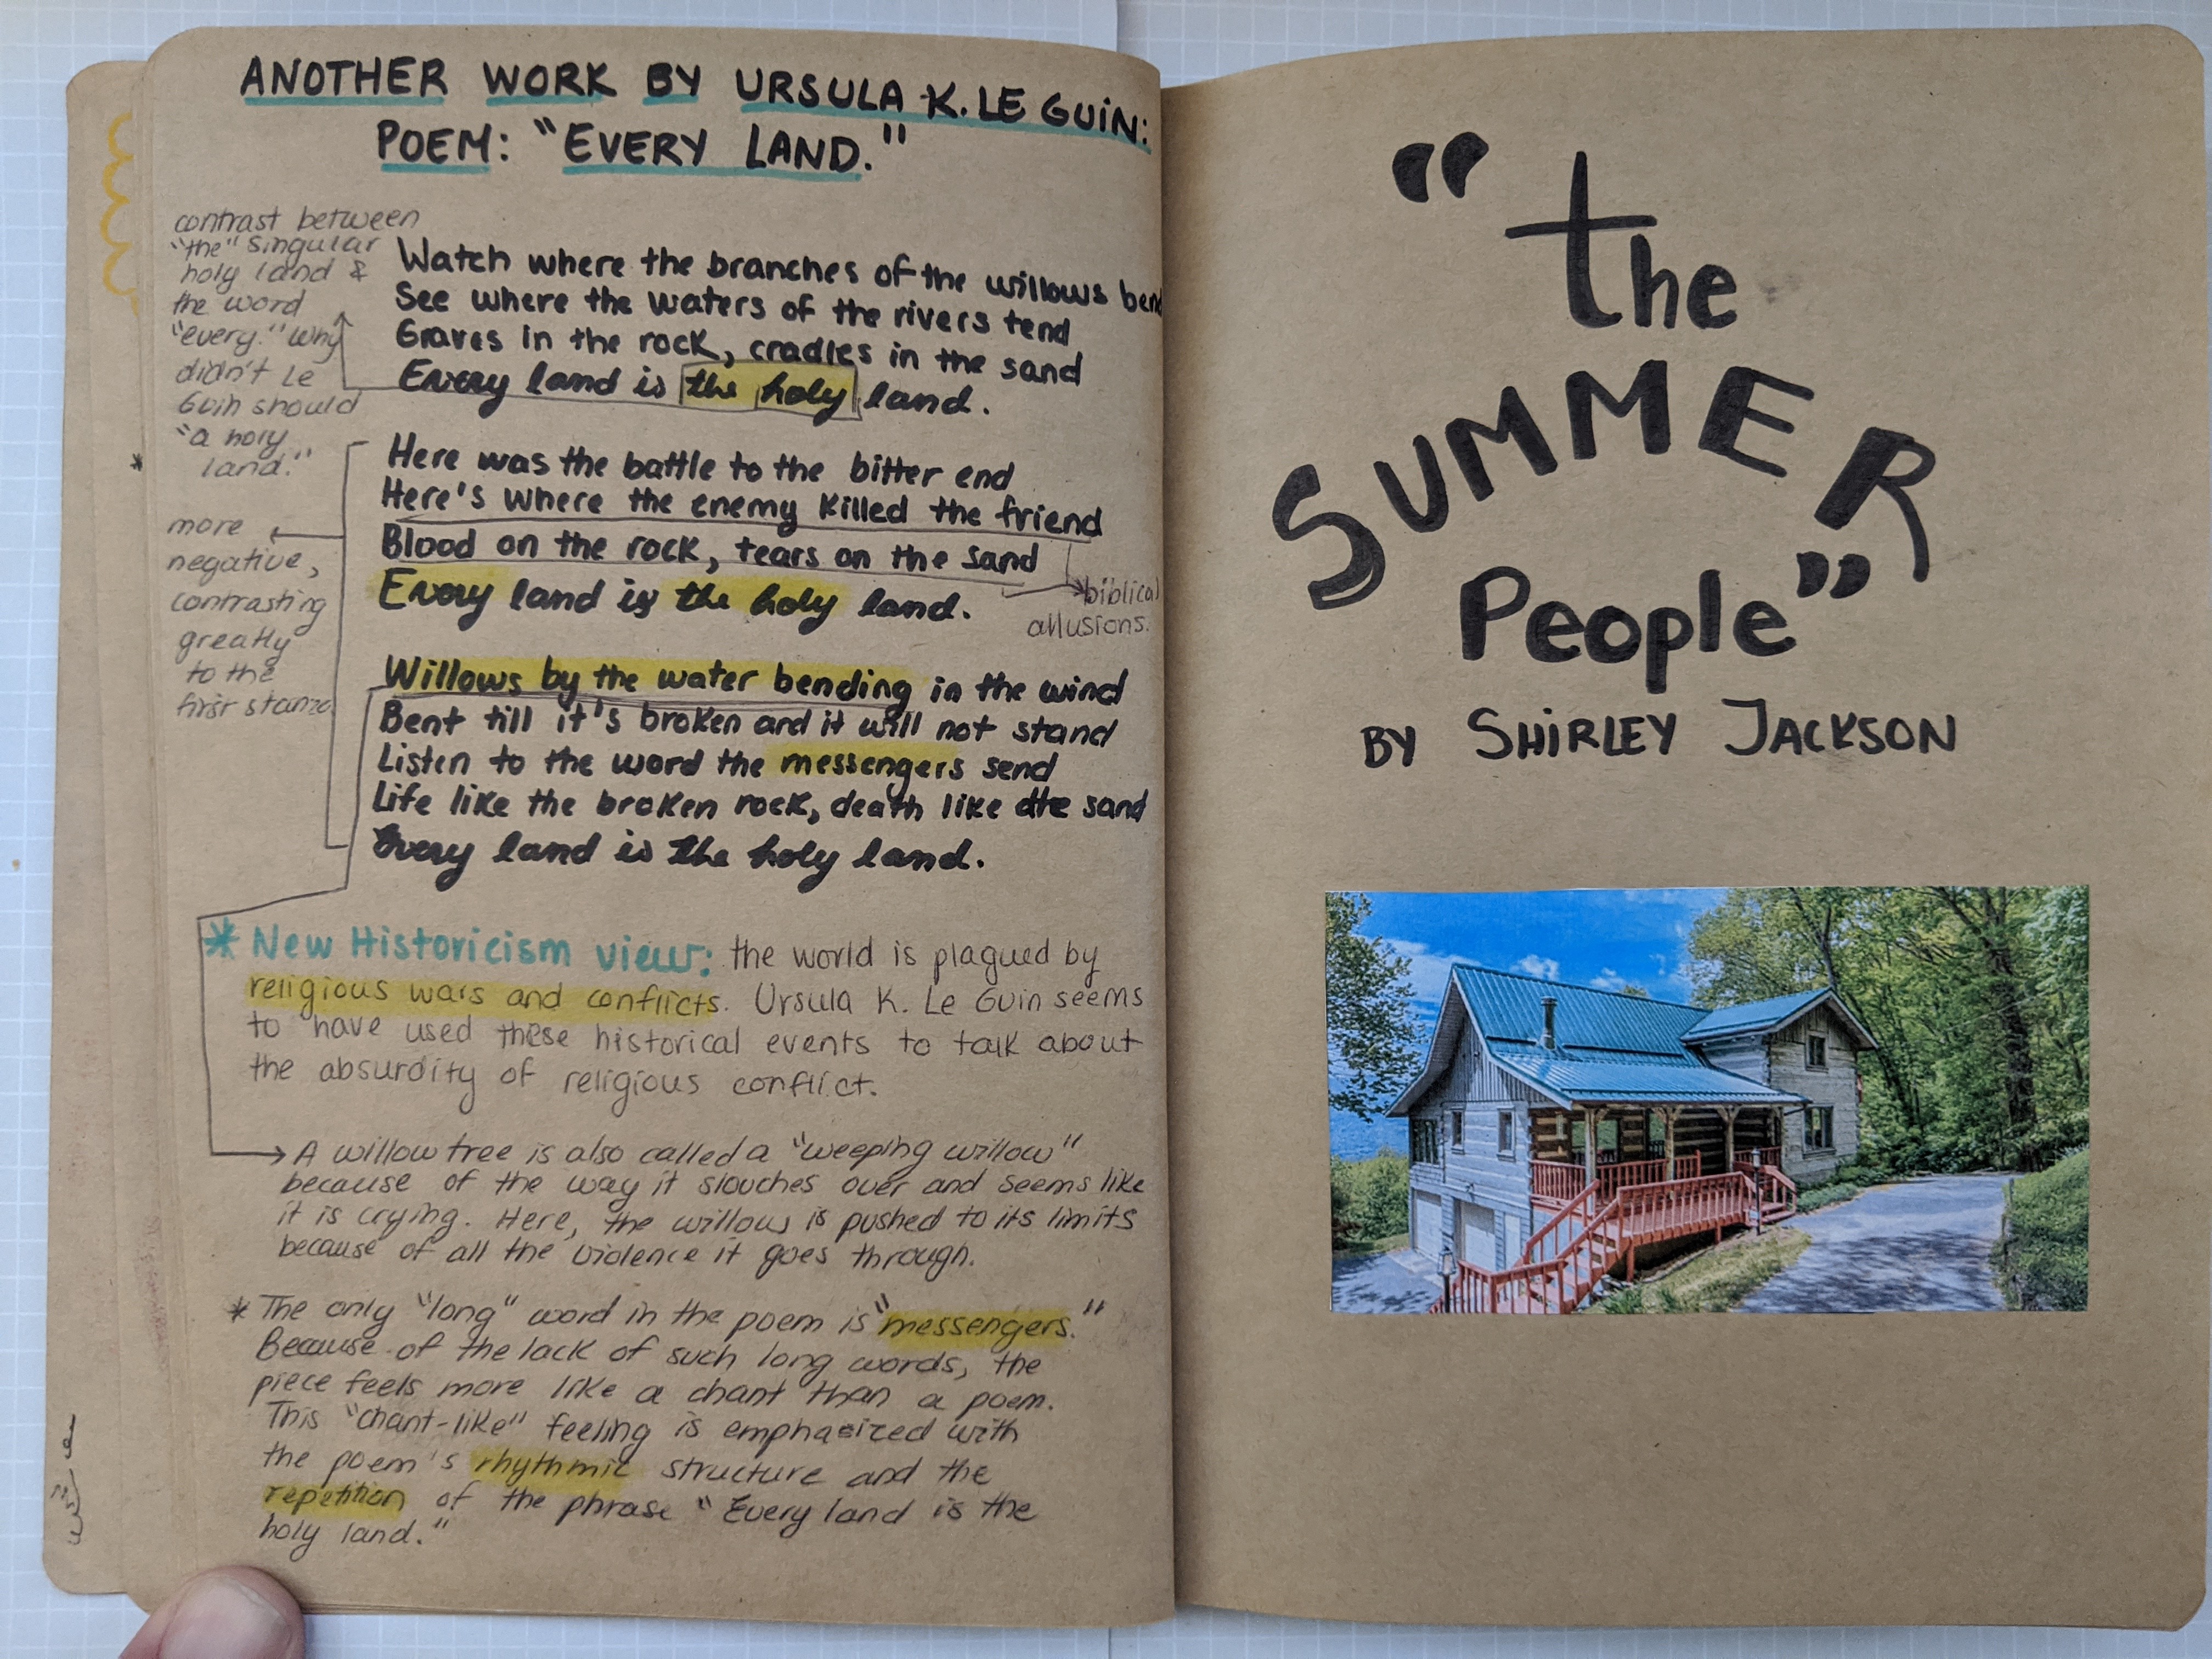 ANOTHER WORK BY URSULA K. LE GUIN:
POEM: "EVERY LAND."
contrast between
"the" singular
holy land &
the word
"every." why
didn't Le
Guin should
"a holy
land."
Watch where the branches of the willows bend
See where the waters of the rivers tend
Graves in the rock, cradles in the sand
Every land is the holy land.
more
negative,
contrasting
greatly
to the
first stanza
Here was the battle to the bitter end
Here's where the enemy killed the friend
Blood on the rock, tears on the sand
Every land is the holy land.
biblical
allusions.
Willows by the water bending in the wind
Bent till it's broken and it will not stand
Listen to the word the messengers send
Life like the broken rock, death like the sand
Every land is the holy land.
* New Historicism view: the world is plagued by
religious wars and conflicts. Ursula K. Le Guin seems
to have used these historical events to talk about
the absurdity of religious conflict.
A willow tree is also called a "weeping willow"
because of the way it slouches over and seems like
it is crying. Here, the willow is pushed to its limits
because of all the violence it goes through.
* The only "long" word in the poem is "messengers."
Because of the lack of such long words, the
piece feels more like a chant than a poem.
This "chant-like" feeling is emphasized with
the poem's rhythmic structure and the
repetition of the phrase "Every land is the
holy land."
"the
SUMMER
People"
BY SHIRLEY JACKSON